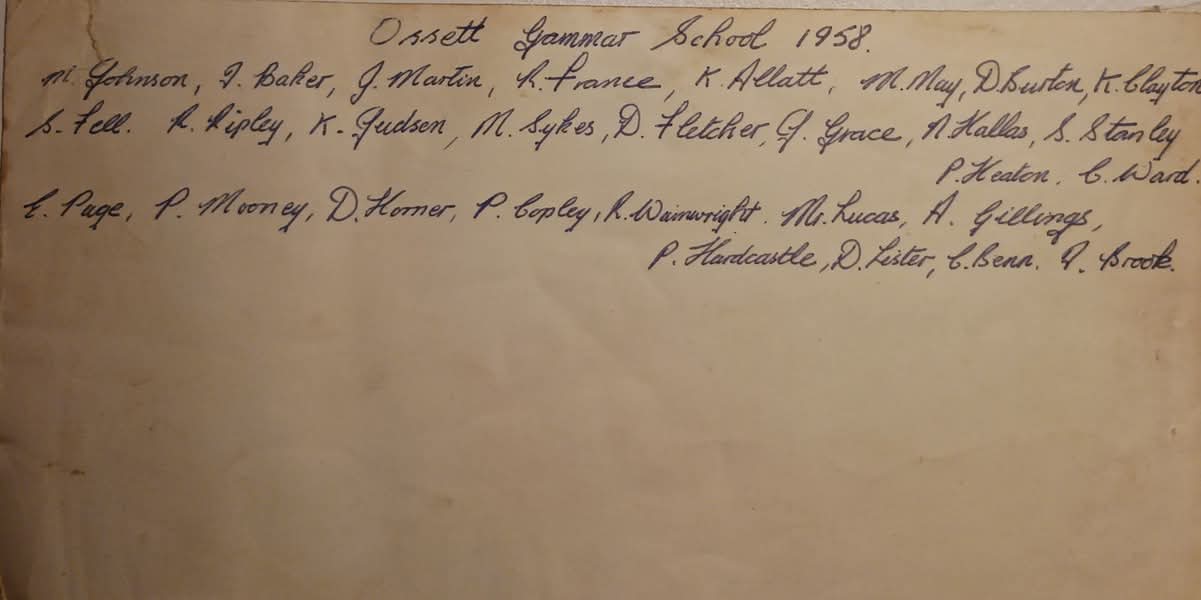 Ossett Gammar School 1958.
M. Johnson, I. Baker, J. Martin, R. France, K. Allatt, M. May, D Burton, K. Clayton
S. Fell. R. Ripley, K. Judson, M. Sykes, D. Fletcher, G. Grace, R Hallas, S. Stanley
P. Heaton. C. Ward.
E. Page, P. Mooney, D. Horner, P. Copley, R. Wainwright. Mr. Lucas, A. Gillings,
P. Hardcastle, D. Lister, C. Benn. Brook.